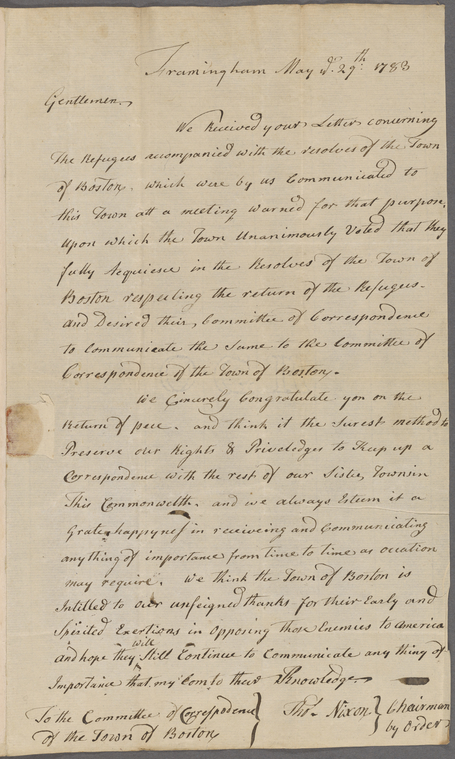 Framingham May yᵉ 29th: 1783
Gentlemen,
We Received your Letter concerning
The Refugees accompanied with the resolves of the Town
of Boston. which were by us Communicated to
this Town att a meeting warned for that purpose,
upon which the Town Unanimously Voted that they
fully Acquiesce in the Resolves of the Town of
Boston respecting the return of the Refugees-
and Desired their, Committee of Correspondence
to Communicate the Same to the Committee of
Correspondence of the Town of Boston.
We Cincerely Congratulate you on the
Return of pece. and think it the Surest method to
Preserve our Rights & Priveledges to Keep up a
Correspondence with the rest of our Sister, Towns in
This Commonwelth. and we always Esteem it a
Grate happyness in receiveing and Communicating
any thing of importance from time to time as occation
may require. We think the Town of Boston is
Intitled to our unfeigned thanks for their Early and
Spirited Exertions in Opposing those Enemies to America
and hope they will Still Continue to Communicate any thing of
Importance that my Com to their Knowledge
To the Committee of Correspodence
of the Town of Boston
Thos. Nixon } Chairman
by Order